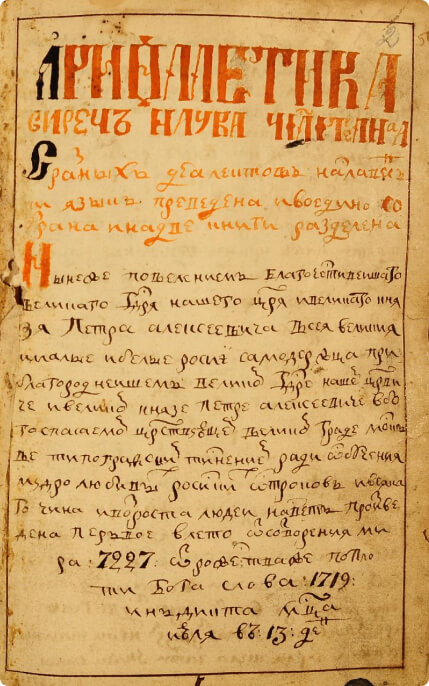 2
АРИѲМЕТИКА
СИРЕЧЪ НАУКА ЧИСЛИТЕЛНАА
С разныхъ диалектовъ на славенс
ки языкъ преведена, и воедино со
брана и на две книги разделена
Ныне же повелениемъ благочестивеишаго
великаго гдря нашего цря и великаго кня
зя Петра алексеевича всея великия
и малые и белые росиі самодержца при
благороднеишемъ велико гдре нашем црви
че и великом князе петре алексеевиче во бо
госпасаемом црствующем велико граде моск
ве типографски тиснение ради обучения
мудролюбивы росиски отроковъ и всяка
го чина и возроста людеи на светъ произве
дена первое в лето от сотворения ми
ра: 7227: от рожества же по пло
ти бога слова: 1719:
индикта мсца
иулия въ: 13: де